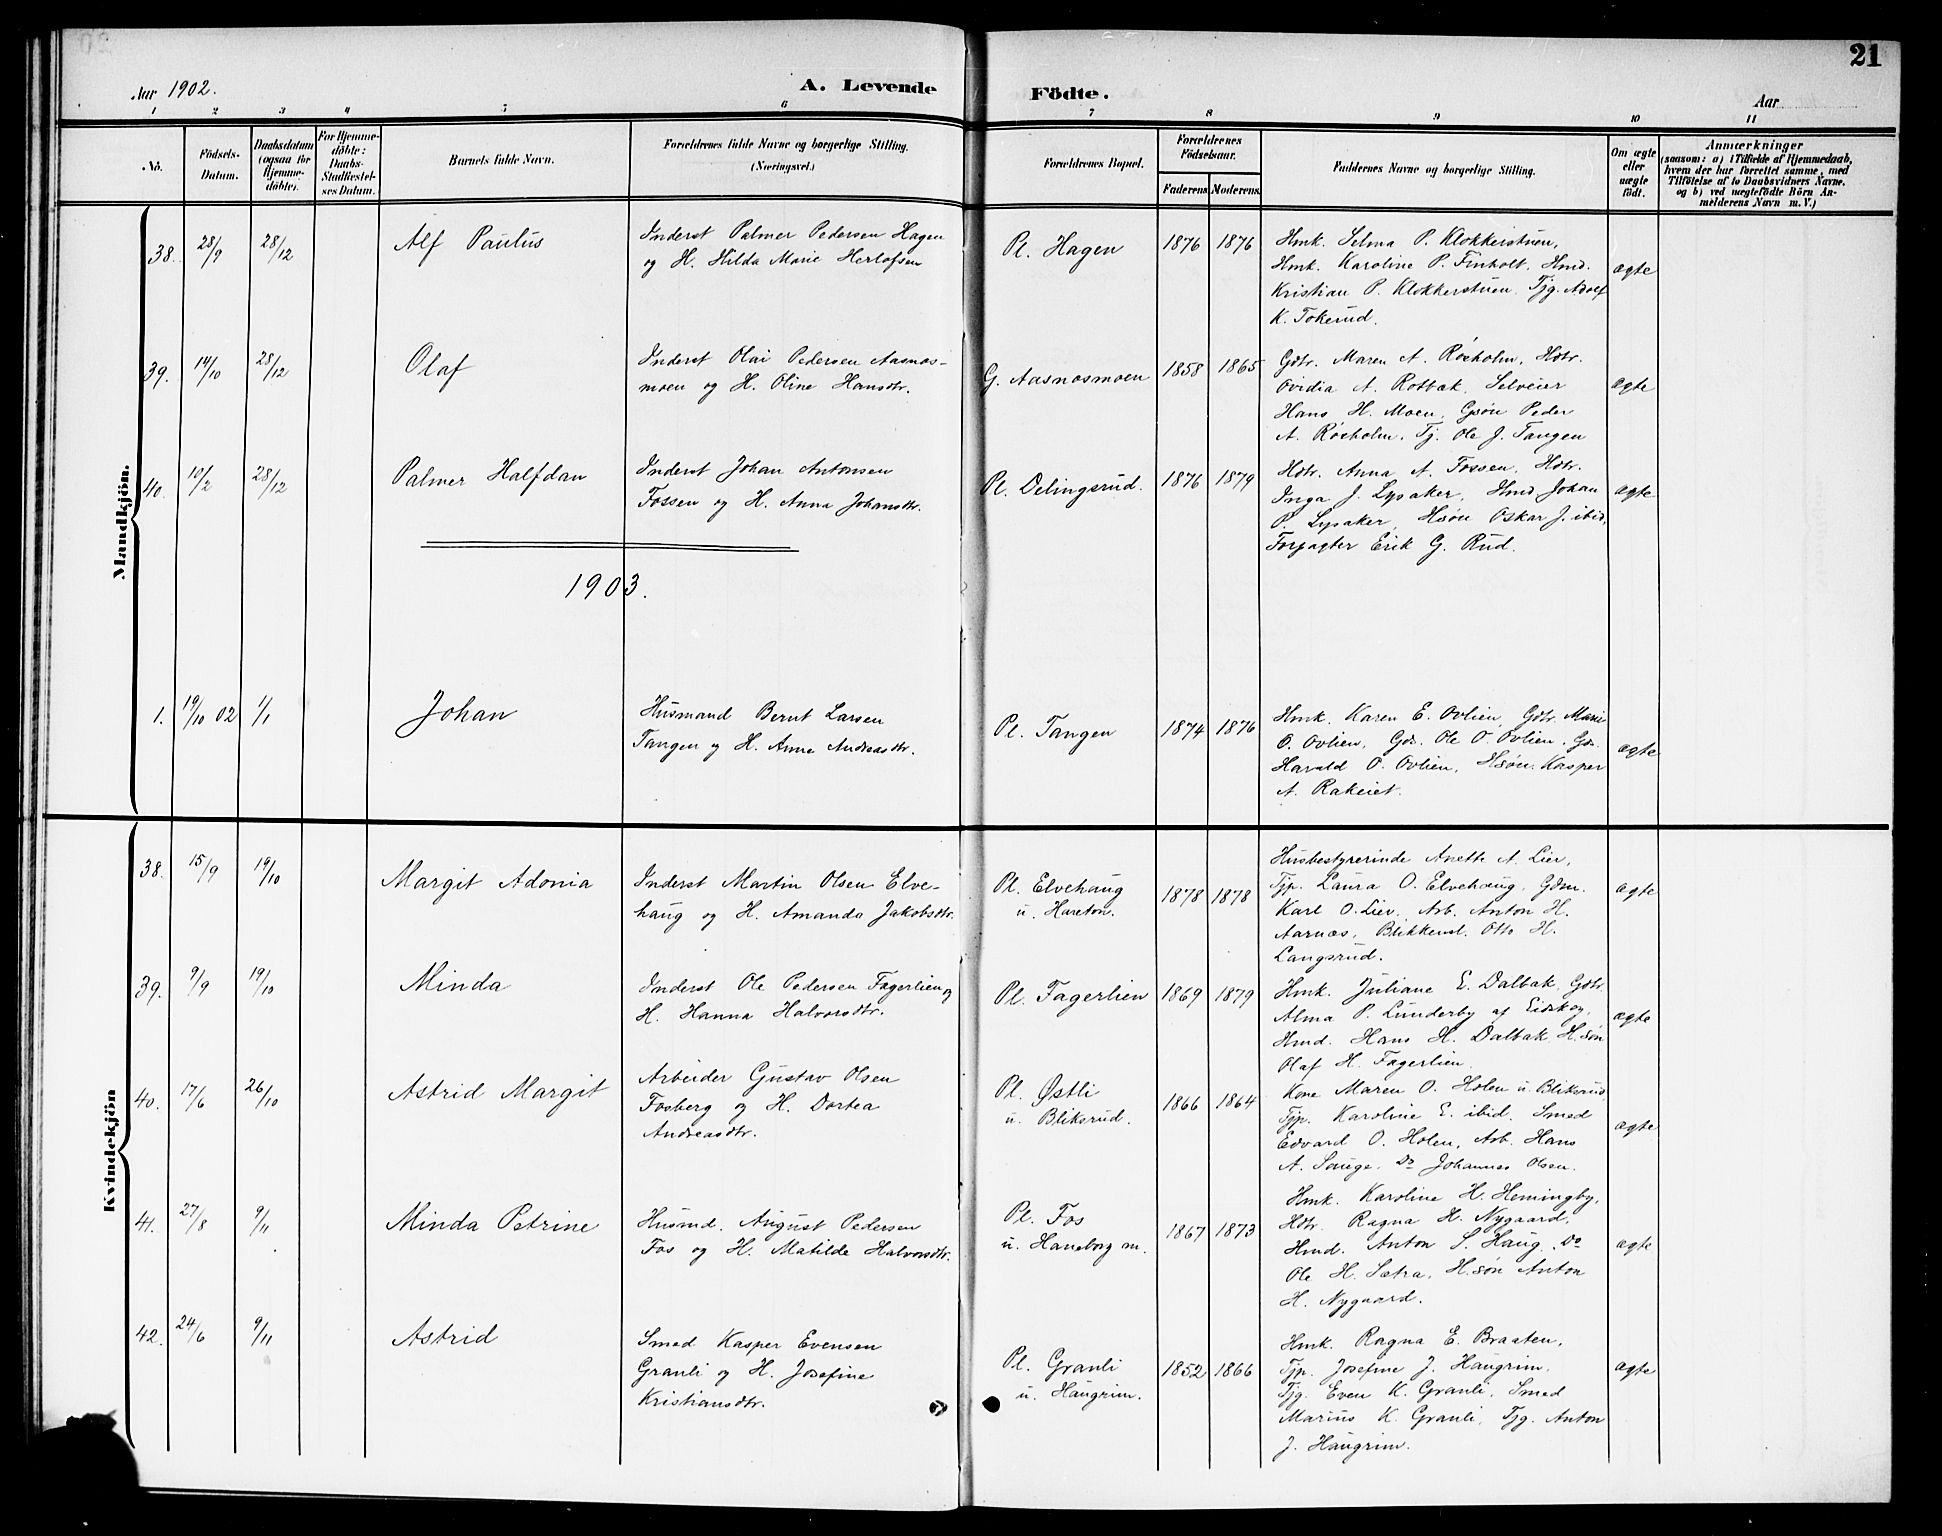 21
Aar 1902.
A. Levende Födte.
Aar
1 2 3 4 5 6 7 8 9 10 11
No.
Födsels-Datum.
Daabsdatum (ogsaa for Hjemme-döbte).
For Hjemme-döbte: Daabs-Stadfæstel-ses Datum.
Barnets fulde Navn.
Forældrenes fulde Navne og borgerlige Stilling.
(Næringsvei.)
Forældrenes Bopæl.
Forældrenes Födselsaar.
Faderens Moderens
Faddernes Navne og borgerlige Stilling.
Om ægte eller uægte födt.
Anmærkninger
(saasom: a) i Tilfælde af Hjemmedaab,
hvem der har forrettet samme, med
Tilföielse af to Daabsvidners Navne,
og b) ved uægtefödte Börn An-
melderens Navn m. V.)
Mandkjön.
38. 28/9 28/12 Alf Paulus
Inderst Palmer Pedersen Hagen
og H. Hilda Marie Herlofsen
Pl. Hagen 1876 1876
Hmk. Selma P. Klokkerstuen,
Hmk. Karoline P. Finholt, Hmd.
Kristian P. Klokkerstuen, Tjg. Adolf
K. Tokerud.
ægte
39. 14/10 28/12 Olaf
Inderst Olai Pedersen Aasnos-
moen og H. Oline Hansdtr.
G. Aasnosmoen 1858 1865
Gdtr. Maren A. Røsholm, Hdtr.
Ovidia A. Rotbæk, Selveier
Hans H. Moen, Gsøn Peder
A. Røsholm, Tj. Ole J. Tangen
ægte
40. 10/2 28/12 Palmer Halfdan
Inderst Johan Antonsen
Fossen og H. Anna Johansdtr.
Pl. Delingsrud. 1876 1879
Hdtr. Anna A. Fossen, Hdtr.
Inga J. Lysaker, Hmd. Johan
P. Lysaker, Hsøn Oskar J. ibid,
Forpagter Erik G. Rud.
ægte
1903.
1. 19/10 02 1/1 Johan
Husmand Bernt Larsen
Tangen og H. Anne Andreasdtr.
Pl. Tangen 1874 1876
Hmk. Karen E. Ovlien, Gdtr. Marie
O. Ovlien, Gds. Ole O. Ovlien, Gds.
Harald O. Ovlien, Hsøn. Kasper
A. Rakeiet.
ægte
Kvindekjön
38. 15/9 19/10 Margit Adonia
Inderst Martin Olsen Elve-
haug og H. Amanda Jakobsdtr.
Pl. Elvehaug
u. Hareton.
1878 1878
Husbestyrerinde Anette A. Lier,
Tjp. Laura O. Elvehaug, Gdm.
Karl O. Lier, Arb. Anton H.
Aarnæs, Blikkensl. Otto H.
Langsrud.
ægte
39. 9/9 19/10 Minda
Inderst Ole Pedersen Fagerlien og
H. Hanna Halvorsdtr.
Pl. Fagerlien 1869 1879
Hmk. Juliane E. Dalbak, Gdtr.
Alma P. Lunderby af Eidskog,
Hmd. Hans H. Dalbak, H.søn
Olaf H. Fagerlien.
ægte
40. 17/6 26/10 Astrid Margit
Arbeider Gustav Olsen
Fosberg og H. Dortea
Andreasdtr.
Pl. Østli
u. Bliksrud.
1866 1864
Kone Maren O. Holen u. Bliksrud
Tjp. Karoline E. ibid. Smed
Edvard O. Holen, Arb. Hans
A. Sauge. Do Johannes Olsen.
ægte
41. 27/8 9/11 Minda Petrine
Husmd. August Pedersen
Fos og H. Matilde Halvorsdtr.
Pl. Fos
u. Haneborg m.
1867 1873
Hmk. Karoline H. Hemingby,
Hdtr. Ragna H. Nygaard,
Hmd. Anton S. Haug, Do
Ole H. Sætra, H.søn Anton
H. Nygaard.
ægte
42. 24/6 9/11 Astrid
Smed Kasper Evensen
Granli og H. Josefine
Kristiansdtr.
Pl. Granli
u. Haugrim.
1852 1866
Hmk. Ragna E. Braaten,
Tjp. Josefine J. Haugrim,
Tjg. Even K. Granli, Smed
Marius K. Granli, Tjg. Anton
J. Haugrim.
ægte